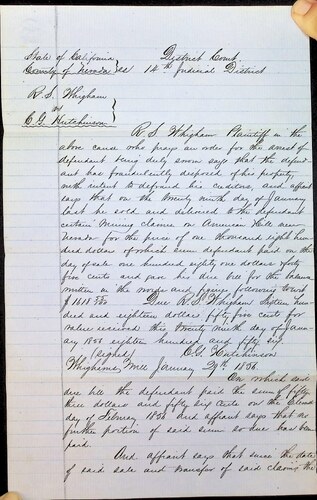 State of California } District Court
County of Nevada } ss 14th Judicial District
R. S. Whigham }
vs }
C. G. Hutchinson }
R. S. Whigham Plaintiff in the
above cause who prays an order for the arrest of
defendant being duly sworn says that the defend-
ant has fraudulently disposed of his property
with intent to defraud his creditors, and affiant
says that on the twenty ninth day of January
last he sold and delivered to the defendant
certain Mining claims on American Hill near
Nevada for the price of one thousand eight hun
dred dollars of which sum defendant paid on the
day of sale one hundred eighty one dollars & forty
five cents and gave his due bill for the balance
written in the words and figures following to wit
$1618 55/100 Due R. S. Whigham Sixteen hun-
dred and eighteen dollars fifty five cents for
value received this twenty ninth day of Janu-
ary 1856 eighteen hundred and fifty six.
(signed) C. G. Hutchinson
Whighams Mill January 29th 1856.
On which said
due bill the defendant paid the sum of fifty
three dollars and fifty six cents on the
day of February 1856 and affiant says that no
further portion of said sum so due has been
paid.
And affiant says that since the date
of said sale and transfer of said claims the